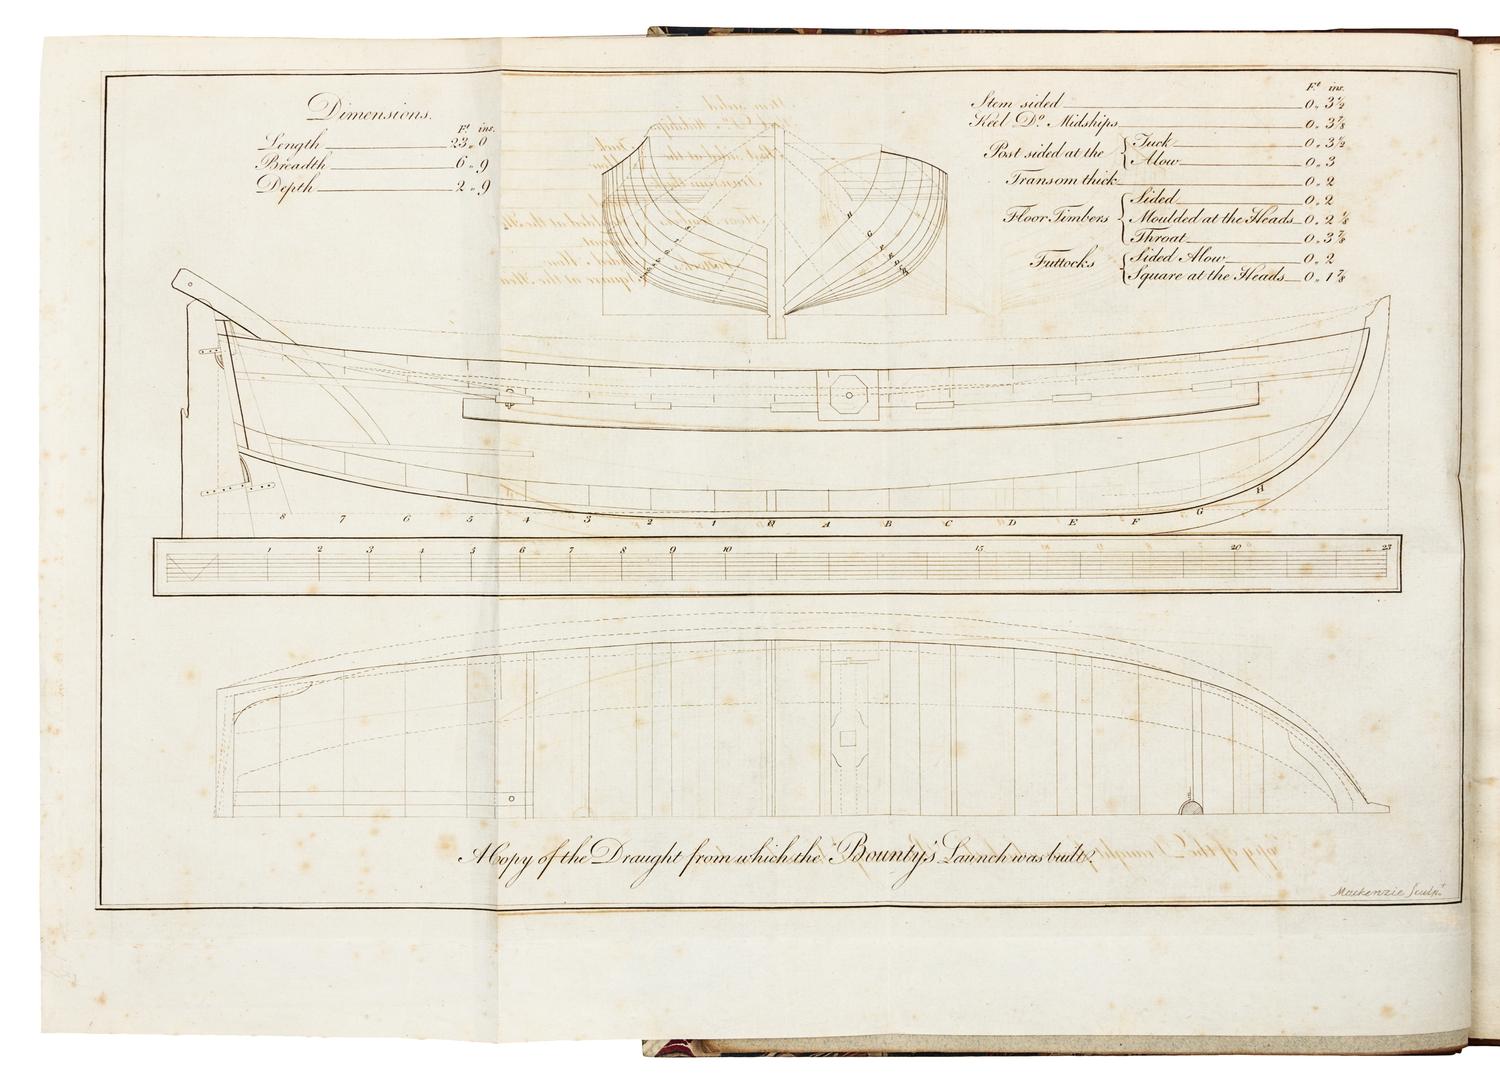 Dimensions.
Ft. ins.
Length 23 „ 0
Breadth 6 „ 9
Depth 2 „ 9
Ft. ins.
Stem sided 0 „ 3½
Keel Do. Midships 0 „ 3⅞
Post sided at the { Tuck 0 „ 3½
Alow 0 „ 3
Transom thick 0 „ 2
Floor Timbers { Sided 0 „ 2
Moulded at the Heads 0 „ 2⅞
Throat 0 „ 3⅞
Futtocks { Sided Alow 0 „ 2
Square at the Heads 0 „ 1⅞
H
G
F
H
8 7 6 5 4 3 2 1 A B C D E F G
1 2 3 4 5 6 7 8 9 10 15 20 23
A Copy of the Draught from which the Bounty's Launch was built.
Mackenzie Sculpt.